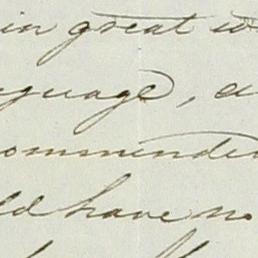 in great
nguage, a
ommended
ld have no